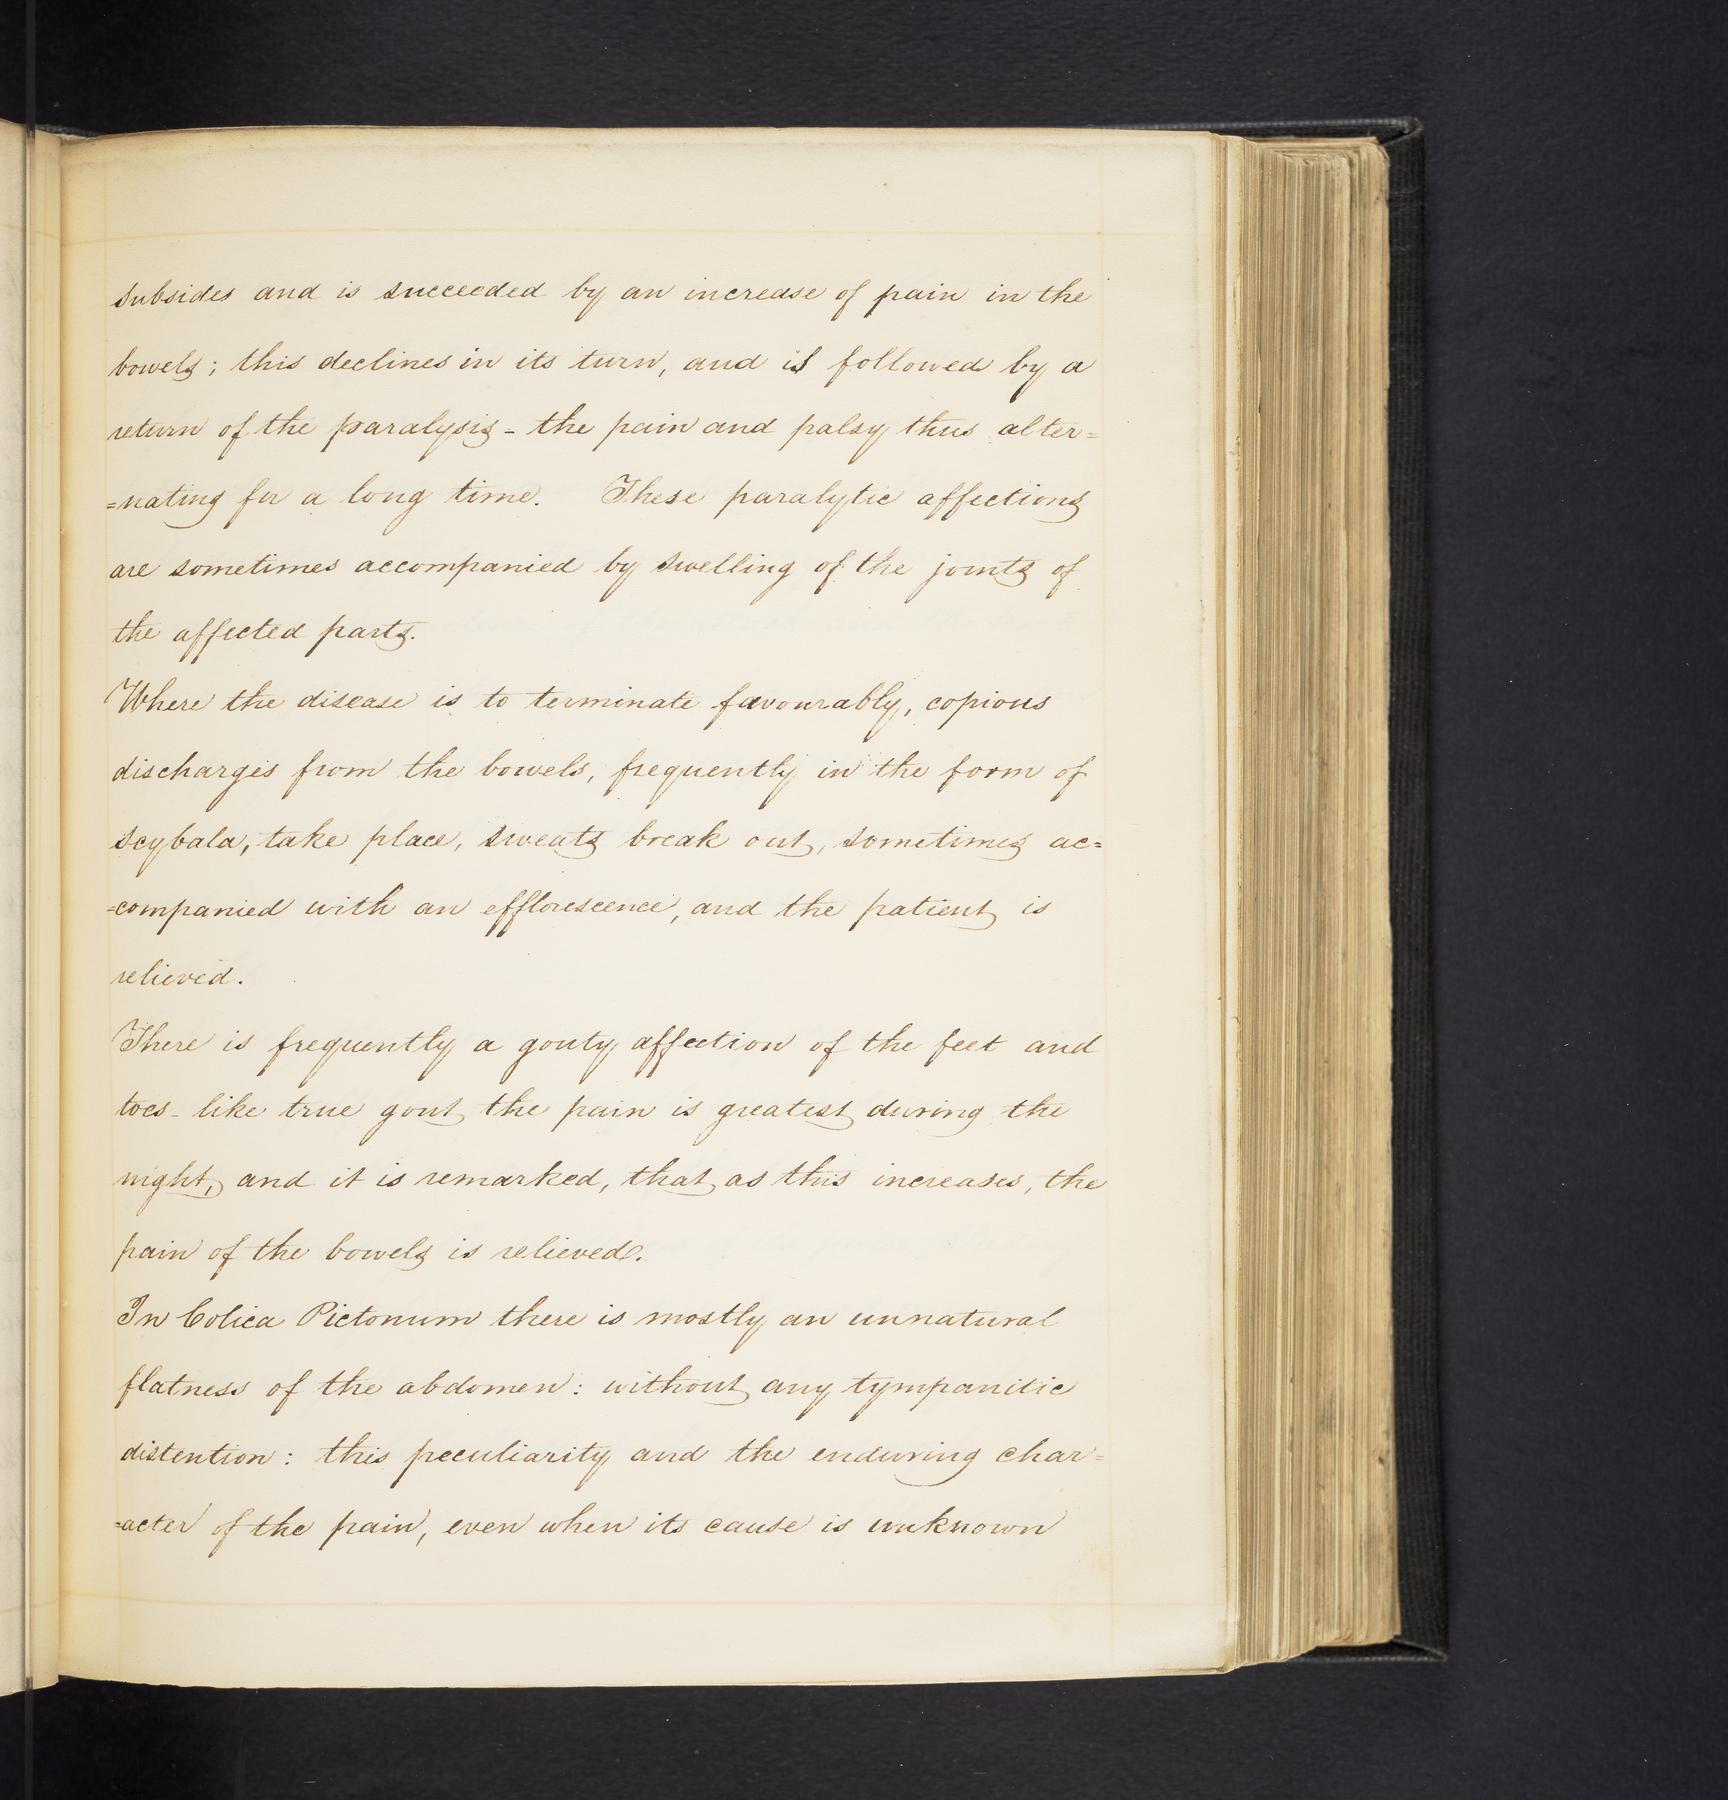 subsides and is succeeded by an increase of pain in the
bowels; this declines in its turn, and is followed by a
return of the paralysis - the pain and palsy thus alter=
=nating for a long time. These paralytic affections
are sometimes accompanied by swelling of the joints of
the affected parts.
Where the disease is to terminate favourably, copious
discharges from the bowels, frequently in the form of
scybala, take place, sweats break out, sometimes ac=
=companied with an efflorescence, and the patient is
relieved.
There is frequently a gouty affection of the feet and
toes - like true gout the pain is greatest during the
night, and it is remarked, that as this increases, the
pain of the bowels is relieved.
In Colica Pictonum there is mostly an unnatural
flatness of the abdomen: without any tympanitic
distention: this peculiarity and the enduring char=
=acter of the pain, even when its cause is unknown